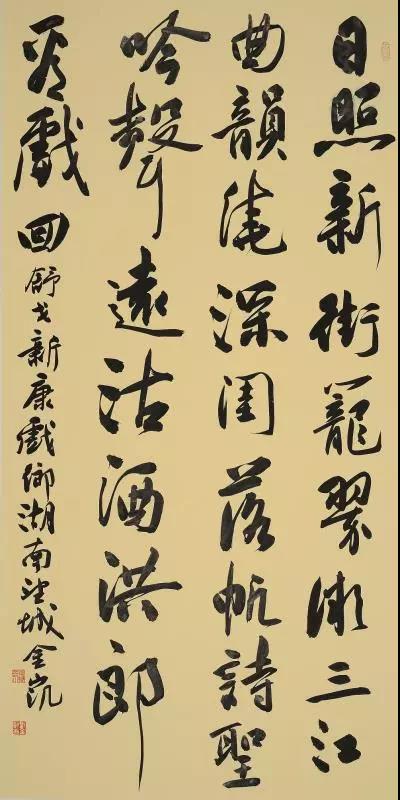 日照新街籠翠微三江
曲韻繞深闺落帆詩聖
吟聲遠沽酒洪郎
看戲回 舒戈新康戲鄉湖南望城金